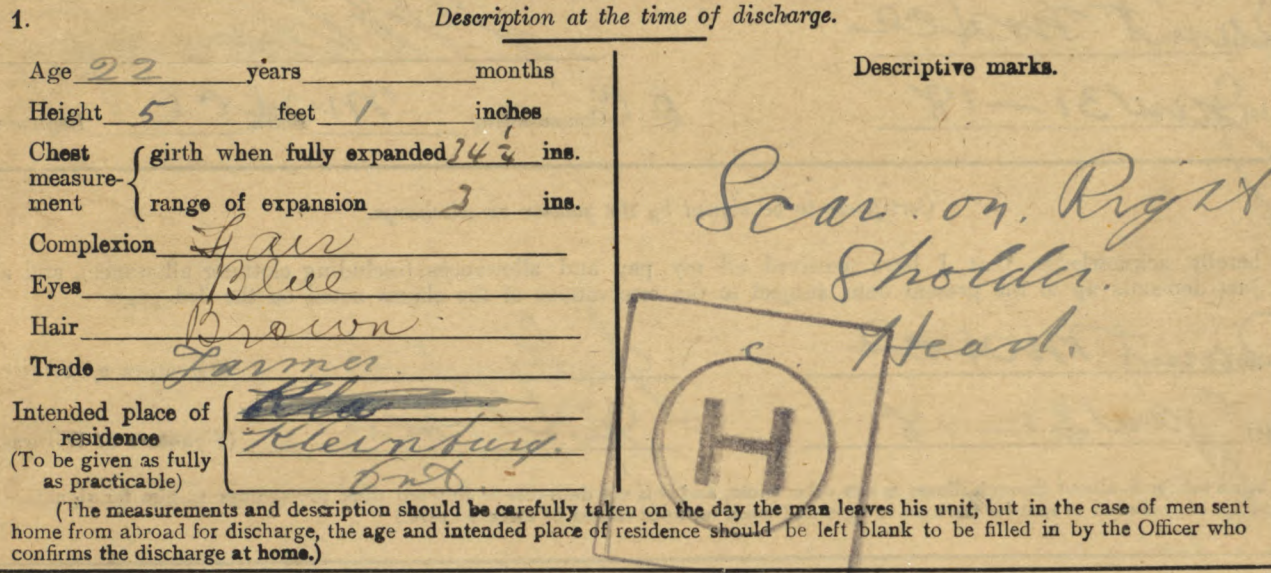 1.
Description at the time of discharge.
Age 22 years months
Height 5 feet 1 inches
Chest measure-ment
girth when fully expanded 34 1/4 ins.
range of expansion 3 ins.
Complexion Fair
Eyes Blue
Hair Brown
Trade Farmer
Intended place of
residence
(To be given as fully
as practicable)
Kleinburg.
Ont.
Descriptive marks.
Scar. on. Right
Sholder
Head.
H
(The measurements and description should be carefully taken on the day the man leaves his unit, but in the case of men sent
home from abroad for discharge, the age and intended place of residence should be left blank to be filled in by the Officer who
confirms the discharge at home.)